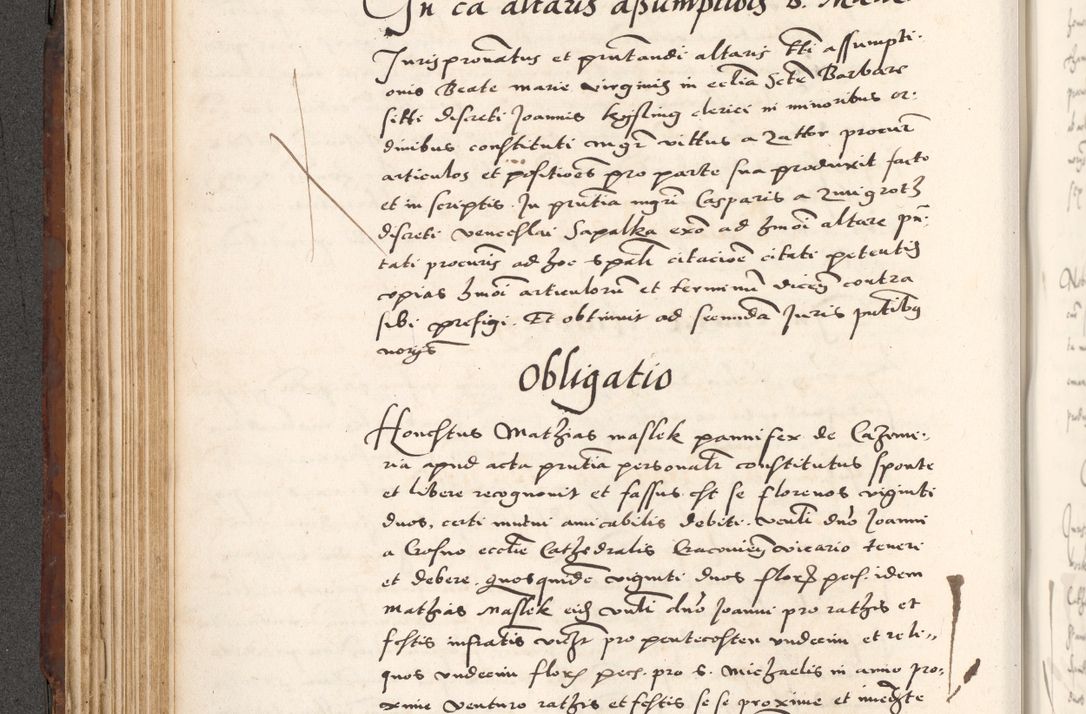 In ca altaris assumptiois b. Marie
Juris pronatus et pntandi altaris ttli assumpti-
onis Beate marie virginis in ecclia Scte Barbare
sitti discreti Joannis kyssling clerici in minoribus or-
dinibus constituti mgr vittus a Zattor procur
articulos et positioes pro parte sua produxit facto
et in scriptis. In pntia mgri Casparis a Zmigrotz
discreti venceslai Sapalka exo ad hmoi altare pn-
tati procuris ad hoc spali citacioe citati petentis
copias hmoi articulorum et terminum dicen contra
sibi prefigi. Et obtinuit ad secunda Juris pntibus
norijs
Obligatio
Honestus Mathias maslek pannifex de Cazimi-
ria apud acta pntia personalr constitutus sponte
et libere recognouit et fassus est se florenos viginti
duos, certi mutui amicabilis debiti. venli dno Joanni
a Crosno ecclie Cathedralis Cracouien vicario teneri
et debere. quosquide viginti duos flor pec. idem
mathias Maslek eid vnli dno Joanni pro rathis et
festis infratis vidz pro pentecosten vndecim et reli-
quos vndecim flor pec. pro s. michaelis in anno pro-
xime venturo rathis et festis se se proxime et immedte